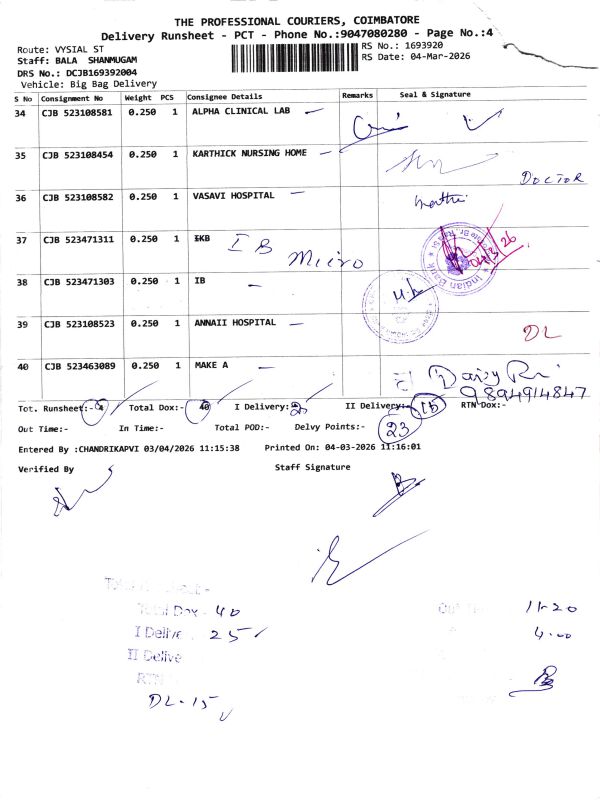 THE PROFESSIONAL COURIERS, COIMBATORE
Delivery Runsheet - PCT - Phone No.:9047080280 - Page No.:4
Route: VYSIAL ST
RS No.: 1693920
Staff: BALA SHANMUGAM
RS Date: 04-Mar-2026
DRS No.: DCJB169392004
Vehicle: Big Bag Delivery
S No Consignment No Weight PCS Consignee Details Remarks Seal & Signature
34 CJB 523108581 0.250 1 ALPHA CLINICAL LAB
35 CJB 523108454 0.250 1 KARTHICK NURSING HOME
DOCTOR
36 CJB 523108582 0.250 1 VASAVI HOSPITAL
37 CJB 523471311 0.250 1 IKB I B
Micro
04/3/26
Indian Bank
38 CJB 523471303 0.250 1 IB
39 CJB 523108523 0.250 1 ANNAII HOSPITAL
DL
40 CJB 523463089 0.250 1 MAKE A
9894914847
Tot. Runsheet:- 4 Total Dox:- 40 I Delivery: 25 II Delivery:- 15 RTN Dox:-
Out Time:- In Time:- Total POD:- Delvy Points:- 23
Entered By :CHANDRIKAPVI 03/04/2026 11:15:38 Printed On: 04-03-2026 11:16:01
Verified By Staff Signature
Total Dox - 40
11-20
I Delive 25
4.00
II Delive
DL-15